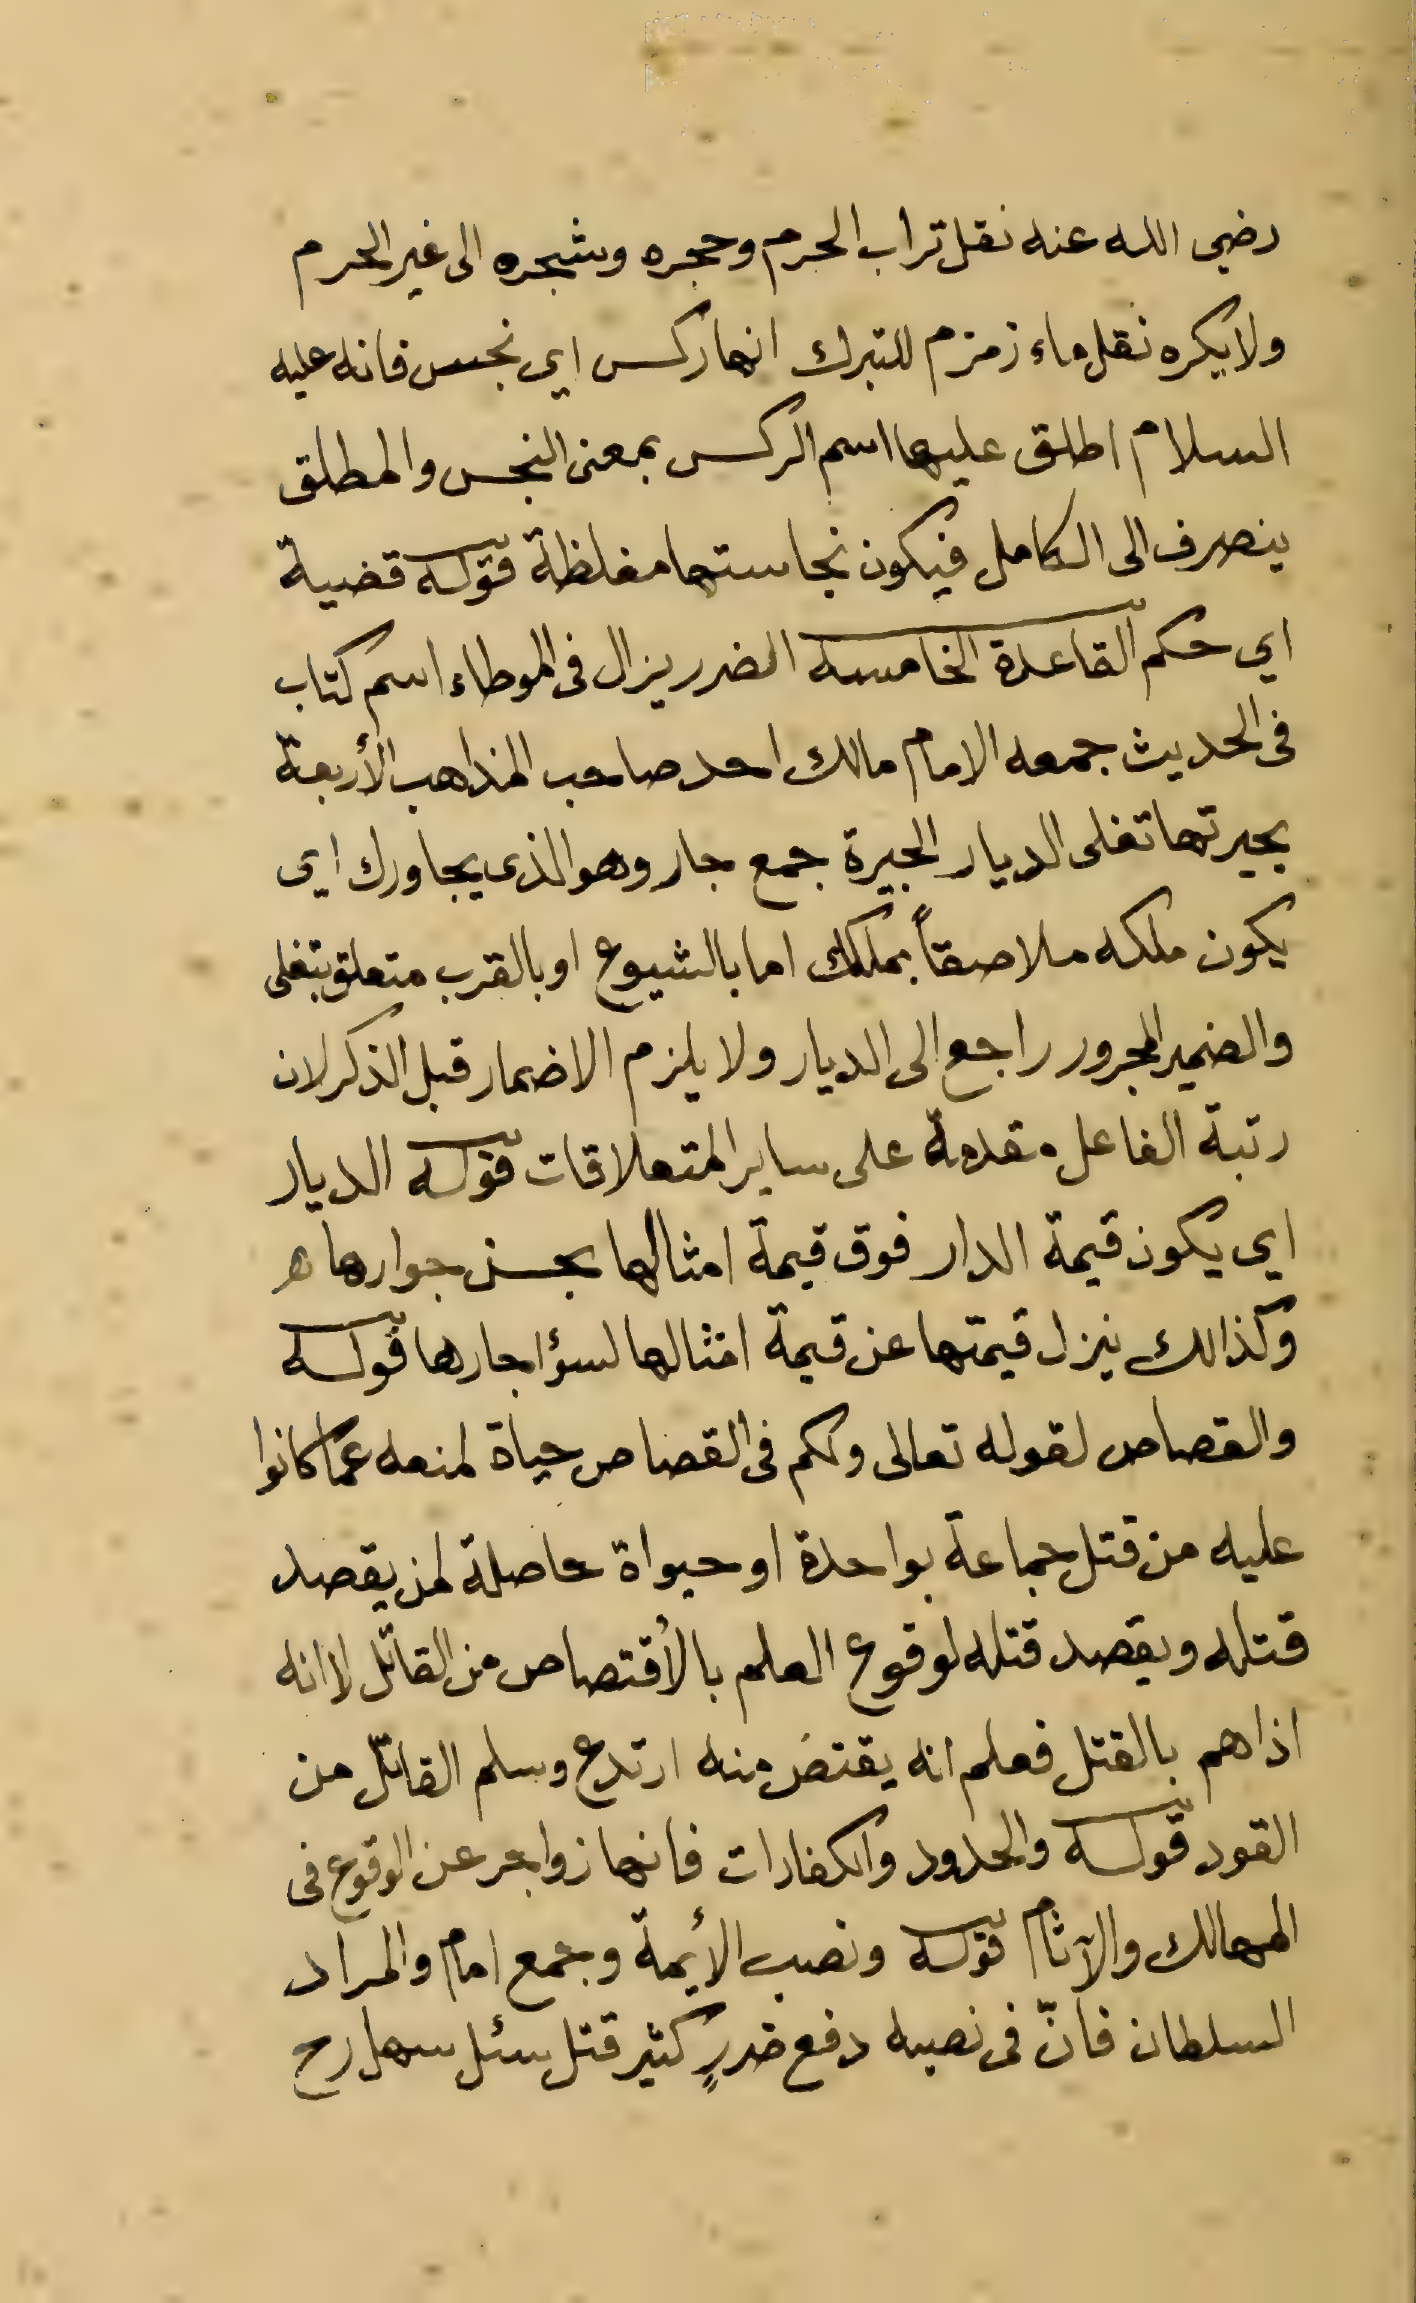 رضي الله عنه نقل تراب الحرم وحجره وشجره الى غير الحرم
ولا يكره نقل ماء زمزم للتبرك انها ركس اي نجس فانه عليه
السلام اطلق عليها اسم الركس بمعنى النجس والمطلق
ينصرف الى الكامل فيكون نجاستها مغلظة قوله قضية
اي حكم القاعدة الخامسه الضرر يزال في الموطاء اسم كتاب
فى الحديث جمعه الامام مالك احد صاحب المذاهب الأربعة
بجيرتها تغلى الديار الجيرة جمع جار وهو الذى يجاورك اى
يكون ملكه ملاصقاً بملكك اما بالشيوع او بالقرب متعلق بتغلى
والضمير المجرور راجع الى الديار ولا يلزم الاضمار قبل الذكر لان
رتبة الفاعل مقدمة على ساير المتعلاقات قوله الديار
اي يكون قيمة الدار فوق قيمة امثالها بحسن جوارها ه
وكذالك ينزل قيمتها عن قيمة امثالها لسؤ اجارها قوله
والقصاص لقوله تعالى ولكم فى القصاص حياة لمنعه عما كانوا
عليه من قتل جماعة بواحدة او حيواة حاصلة لمن يقصد
قتله ويقصد قتله لوقوع العلم بالأقتصاص من القاتل لاانه
اذاهم بالقتل فعلم انه يقتض منه ارتدع وسلم القاتل من
القود قوله والحدود والكفارات فانها زواجر عن الوقوع فى
المهالك والآثام قوله ونصب الأيمة وجمع امام والمراد
السلطان فانّ فى نصبه دفع ضررٍ كثير قتل سئل سهل رح